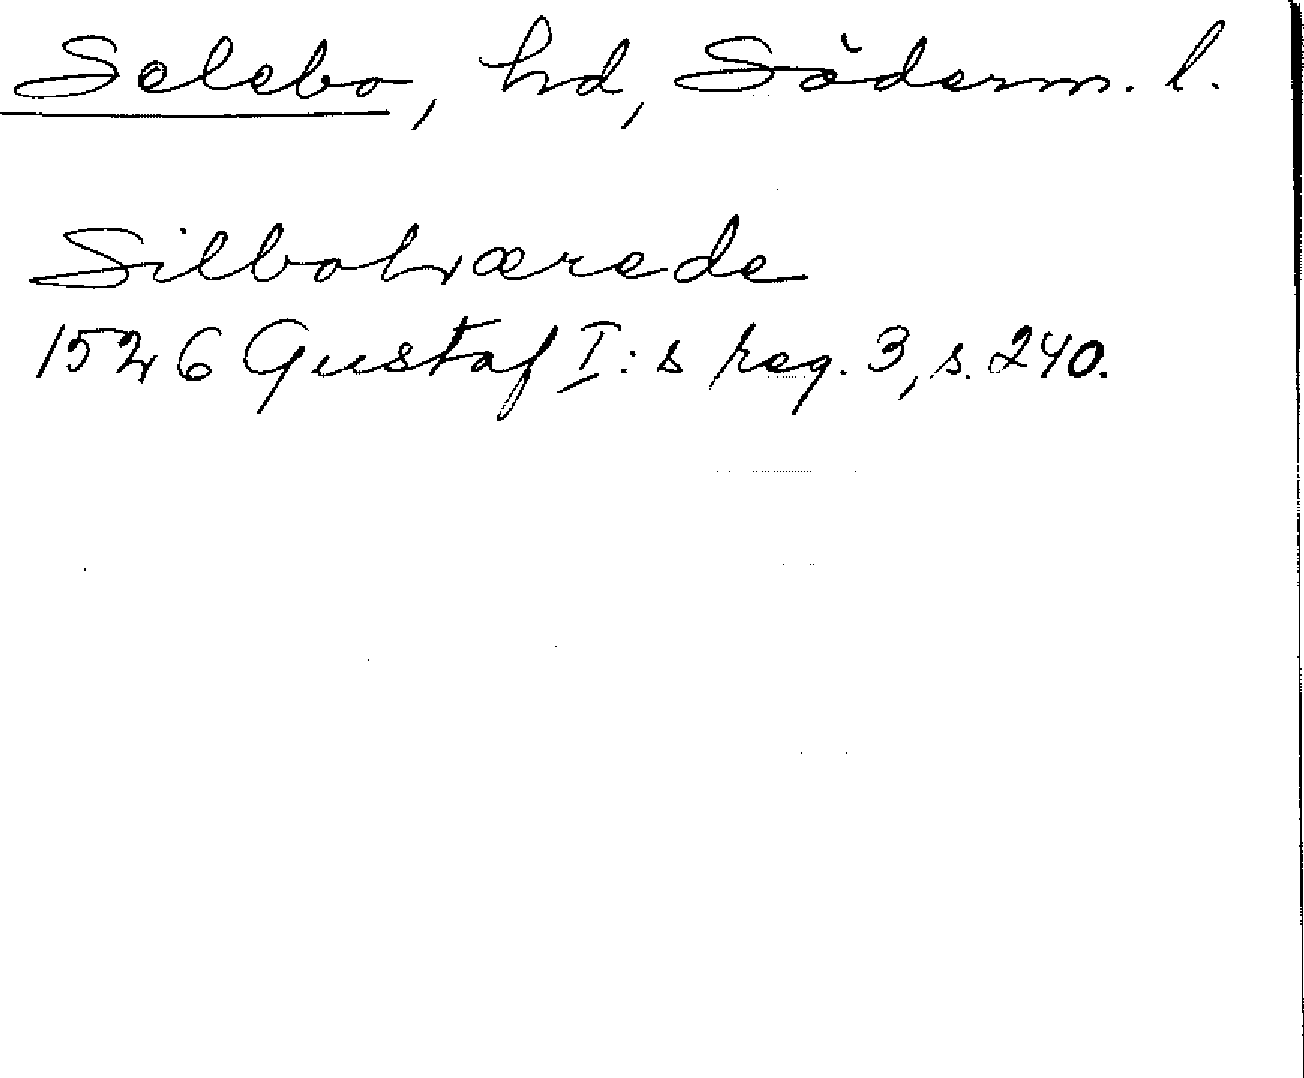 Selebo, hd, Söderm. l.
Silbohærede
1526 Gustaf I:s reg. 3, s. 240.